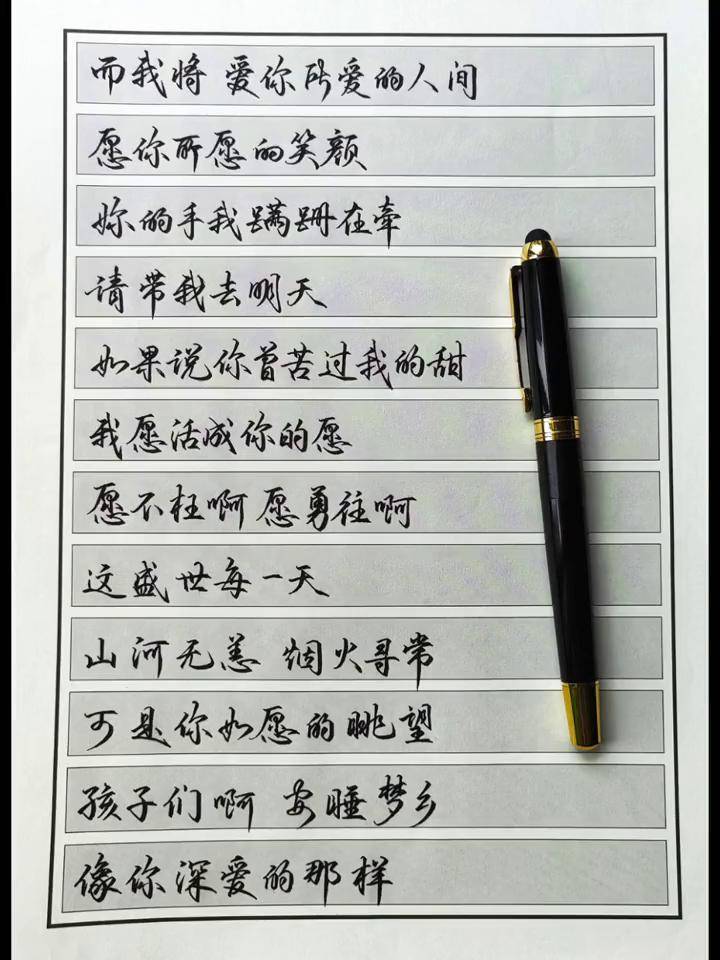 而我将 爱你所爱的人间
愿你所愿的笑颜
你的手我蹒跚在牵
请带我去明天
如果说你曾苦过我的甜
我愿活成你的愿
愿不枉啊 愿勇往啊
这盛世每一天
山河无恙 烟火寻常
可是你如愿的眺望
孩子们啊 安睡梦乡
像你深爱的那样